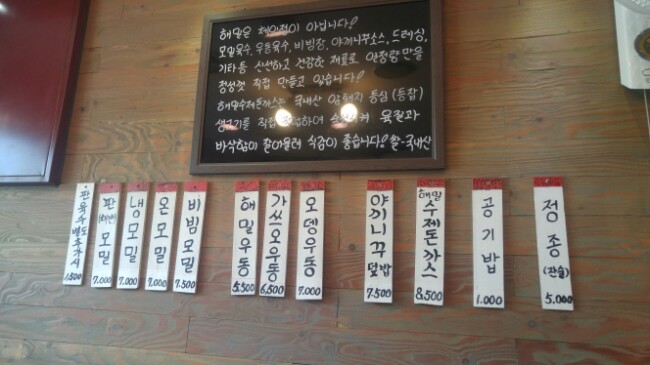 해밀은 체인점이 아닙니다!
모밀육수, 우동육수, 비빔장, 야끼니꾸소스, 드레싱,
기타등 신선하고 건강한 재료로 일정량만을
정성껏 직접 만들고 있습니다!
해밀수제돈까스는 국내산 암퇘지 등심(통잡)
생고기를 직접 하여 육질과
바삭함이 어울려 식감이 좋습니다! 쌀-국내산
추가시
1,500
판 모밀
7.000
냉모밀
7.000
온모밀
7.000
비빔모밀
7.500
해밀우동
5,500
가쓰오우동
6,500
오뎅우동
7.000
야끼니꾸
덮밥
7.500
해밀
수제돈까스
8,500
공기밥
1.000
정종
(잔술)
5.000